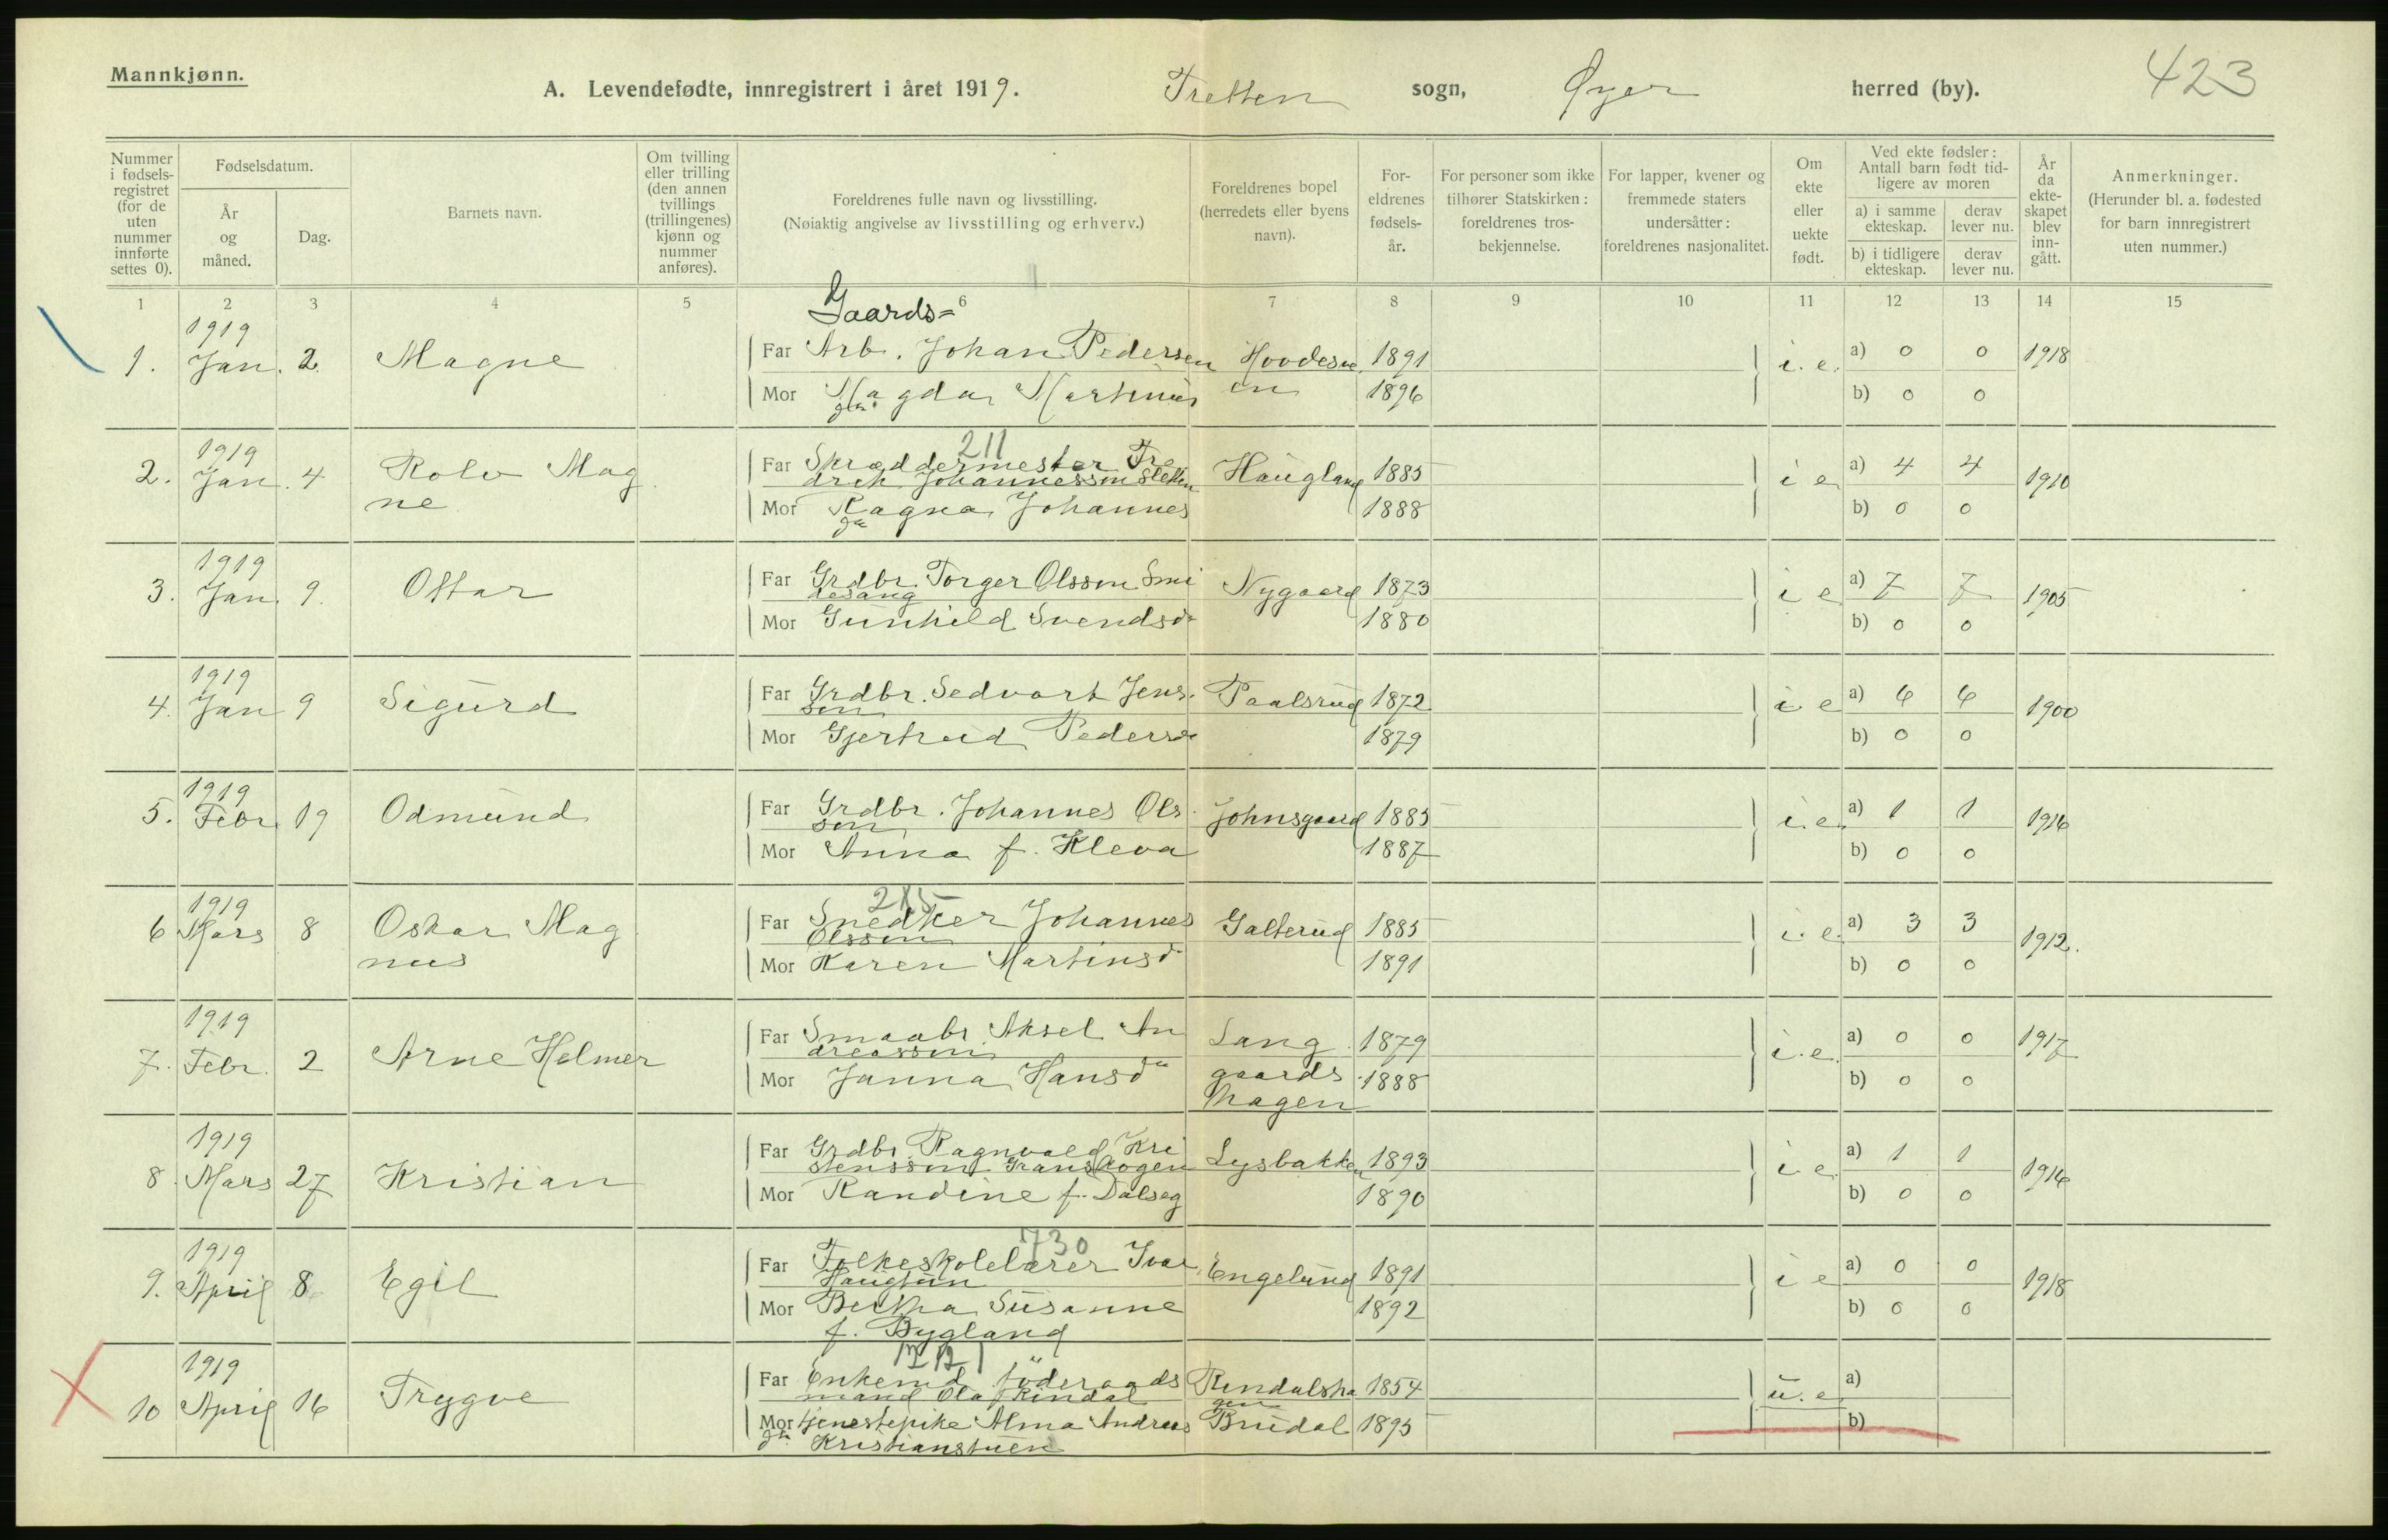 Mannkjønn.
A. Levendefødte, innregistrert i året 1919. Tretten sogn, Øyer herred (by). 423
Nummer i fødsels-registret (for de uten nummer innførte settes 0).
Fødselsdatum.
År og måned.
Dag.
Barnets navn.
Om tvilling eller trilling (den annen tvillings (trillingenes) kjønn og nummer anføres).
Foreldrenes fulle navn og livsstilling.
(Nøiaktig angivelse av livsstilling og erhverv.)
Foreldrenes bopel (herredets eller byens navn).
For-eldrenes fødsels-år.
For personer som ikke tilhører Statskirken: foreldrenes tros-bekjennelse.
For lapper, kvener og fremmede staters undersåtter: foreldrenes nasjonalitet.
Om ekte eller uekte født.
Ved ekte fødsler: Antall barn født tid-ligere av moren
a) i samme ekteskap.
derav lever nu.
b) i tidligere ekteskap.
derav lever nu.
År da ekte-skapet blev inn-gått.
Anmerkninger.
(Herunder bl. a. fødested for barn innregistrert uten nummer.)
1 2 3 4 5 6 7 8 9 10 11 12 13 14 15
Gaards=
1. 1919 Jan. 2. Magne Far Arb. Johan Pedersen 1891 i. e. a) 0 0 1918
Mor Magda Martinus en 1896 b) 0 0
211
2. 1919 Jan. 4 Rolv Mag
ne
Far Skræddermester Fre
drik Johannesson Sletten Haugland 1885 i e a) 4 4 1910
Mor Ragna Johannes 1888 b) 0 0
3. 1919 Jan. 9. Ottar Far Grdbr. Torger Olsson Smi
desang Nygaard 1873 i e a) 7 7 1905
Mor Gunhild Svendsd 1880 b) 0 0
4. 1919 Jan 9 Sigurd Far Grdbr. Sedvart Jens
son Paalsrud 1872 i e a) 6 6 1900
Mor Gjertrud Pedersd 1879 b) 0 0
5. 1919 Febr. 19 Odmund Far Grdbr. Johannes Ols
son Johnsgaard 1885 i. e. a) 1 1 1916
Mor Anna f. Kleva 1887 b) 0 0
215
6 1919 Mars 8 Oskar Mag
nus
Far Snedker Johannes
Olsson Galterud 1885 i. e. a) 3 3 1912.
Mor Karen Martinsd 1891 b) 0 0
7. 1919 Febr. 2 Arne Helmer Far Smaabr. Aksel An
dreasson Lang 1879 i. e. a) 0 0 1917
Mor Janna Hansd gaards 1888 b) 0 0
hagen
8. 1919 Mars 27 Kristian Far Grdbr. Ragnvald Kri
stensson Lysbakken 1893 i e. a) 1 1 1916
Mor Randine f. Dalseg 1890 b) 0 0
730
9. 1919 April 8 Egil Far Folkeskolelærer Ivar
Haugtun Engelund 1891 i e a) 0 0 1918
Mor Bertha Susanne 1892 b) 0 0
f. Bygland
10 1919 April 16 Trygve Far Enkemd föderaads
mand Ola Rindal Rindalsha
gen 1854 u. e. a)
Mor tjenestepike Alma Andreas Brudal 1895 b)
Kristianstuen